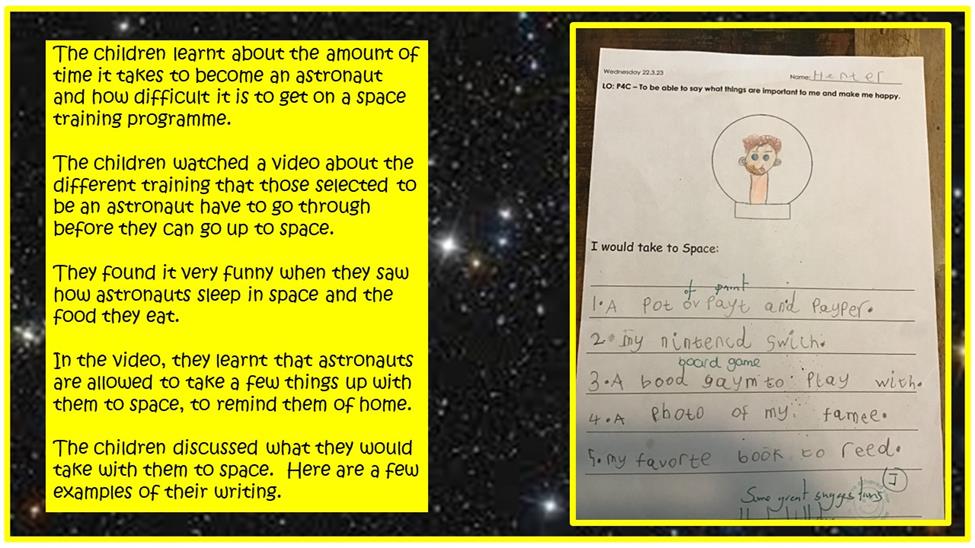 The children learnt about the amount of
time it takes to become an astronaut
and how difficult it is to get on a space
training programme.
The children watched a video about the
different training that those selected to
be an astronaut have to go through
before they can go up to space.
They found it very funny when they saw
how astronauts sleep in space and the
food they eat.
In the video, they learnt that astronauts
are allowed to take a few things up with
them to space, to remind them of home.
The children discussed what they would
take with them to space. Here are a few
examples of their writing.
Wednesday 22.3.23
Name:
LO: P4C – To be able to say what things are important to me and make me happy.
I would take to Space:
of paint
1. A pot ov payt and payper.
2. my nintend swich.
board game
3. A bood gaym to play with.
4. A photo of my famee.
5. my favorte book to reed.
I
Some great suggestions